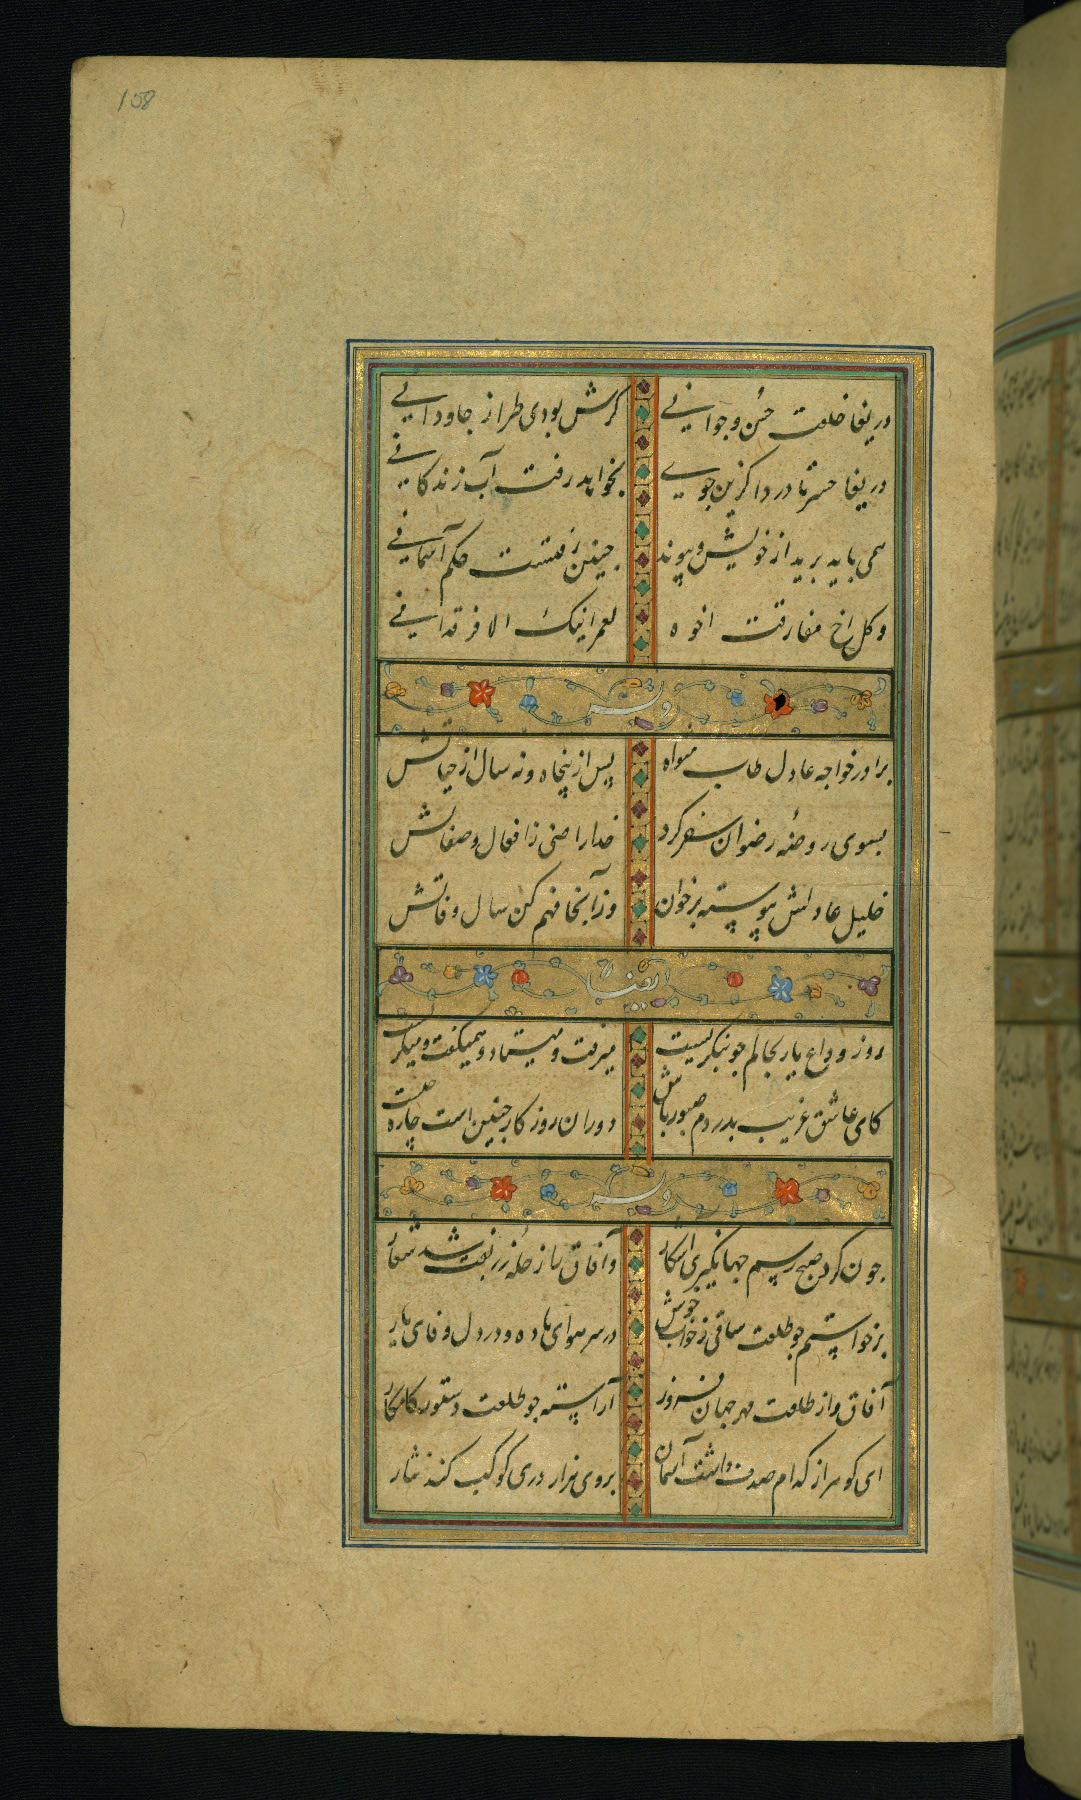 158
دریغا خلعت حسن و جوانی گرش بودی طراز جاودانی
دریغا حسرتا دردا کزین جوی بخواهد رفت آب زندگانی
همی باید برید از خویش و پیوند چنین رفتست حکم آسمانی
وکل اخ مفارقت اخوه لعمر ابیک الا فرقدانی
وله
برادر خواجه عادل طاب مثواه پس از پنجاه و نه سال از حیاتش
بسوی روضهٔ رضوان سفر کرد خدا راضی ز افعال و صفاتش
خلیل عادلش پیوسته برخوان وز آنجا فهم کن سال وفاتش
ایضا
روز وداع یار بحالم چو بنگریست میرفت و میستاد و همیگفت و میگریست
کای عاشق غریب بدردم صبور باش دوران روزگار چنین است چاره چیست
وله
چون کرد صبح رسم جهانگیری آشکار و آفاق را ز حله زربفت شد شعار
برخواستم چو طلعت ساقی ز خواب خوش در سر هوای باده و در دل وفای یار
آفاق را از طلعت مهر جهان فروز آراسته چو طلعت دستور کامکار
ای گوهر از کدام صدف داشت آسمان بروی هزار دری کوکب کند نثار